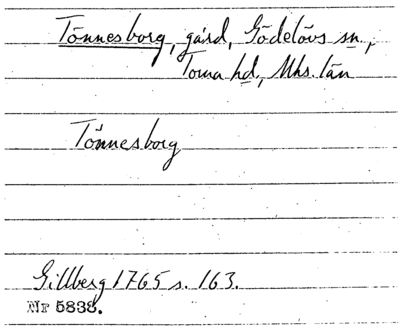 Tönnesborg, gård, Gödelövs sn,
Torna hd, Mhs. län
Tönnesborg
Gillberg 1765 s. 163.
Nr 5838.